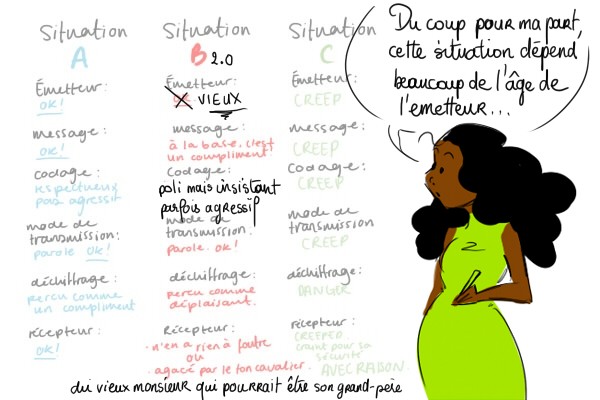 Situation
A
Émetteur:
OK!
message:
OK!
Codage:
respectueux
pas agressif
mode de
transmission:
parole OK!
déchiffrage:
perçu comme
un compliment
récepteur:
OK!
Situation
B 2.0
Émetteur:
VIEUX
message:
à la base, c'est
un compliment!
Codage:
poli mais insistant
parfois agressif
mode de
transmission:
parole. OK!
déchiffrage:
perçu comme
déplaisant.
Récepteur:
. n'en a rien à foutre
ou
. agacé par le ton cavalier.
du vieux monsieur qui pourrait être son grand-père
Situation
C
Émetteur:
CREEP
message:
CREEP
Codage:
CREEP
mode de
transmission:
CREEP
déchiffrage:
DANGER
récepteur:
CREEPED
craint pour sa
sécurité
AVEC RAISON.
Du coup pour ma part,
cette situation dépend
beaucoup de l'âge de
l'emetteur...